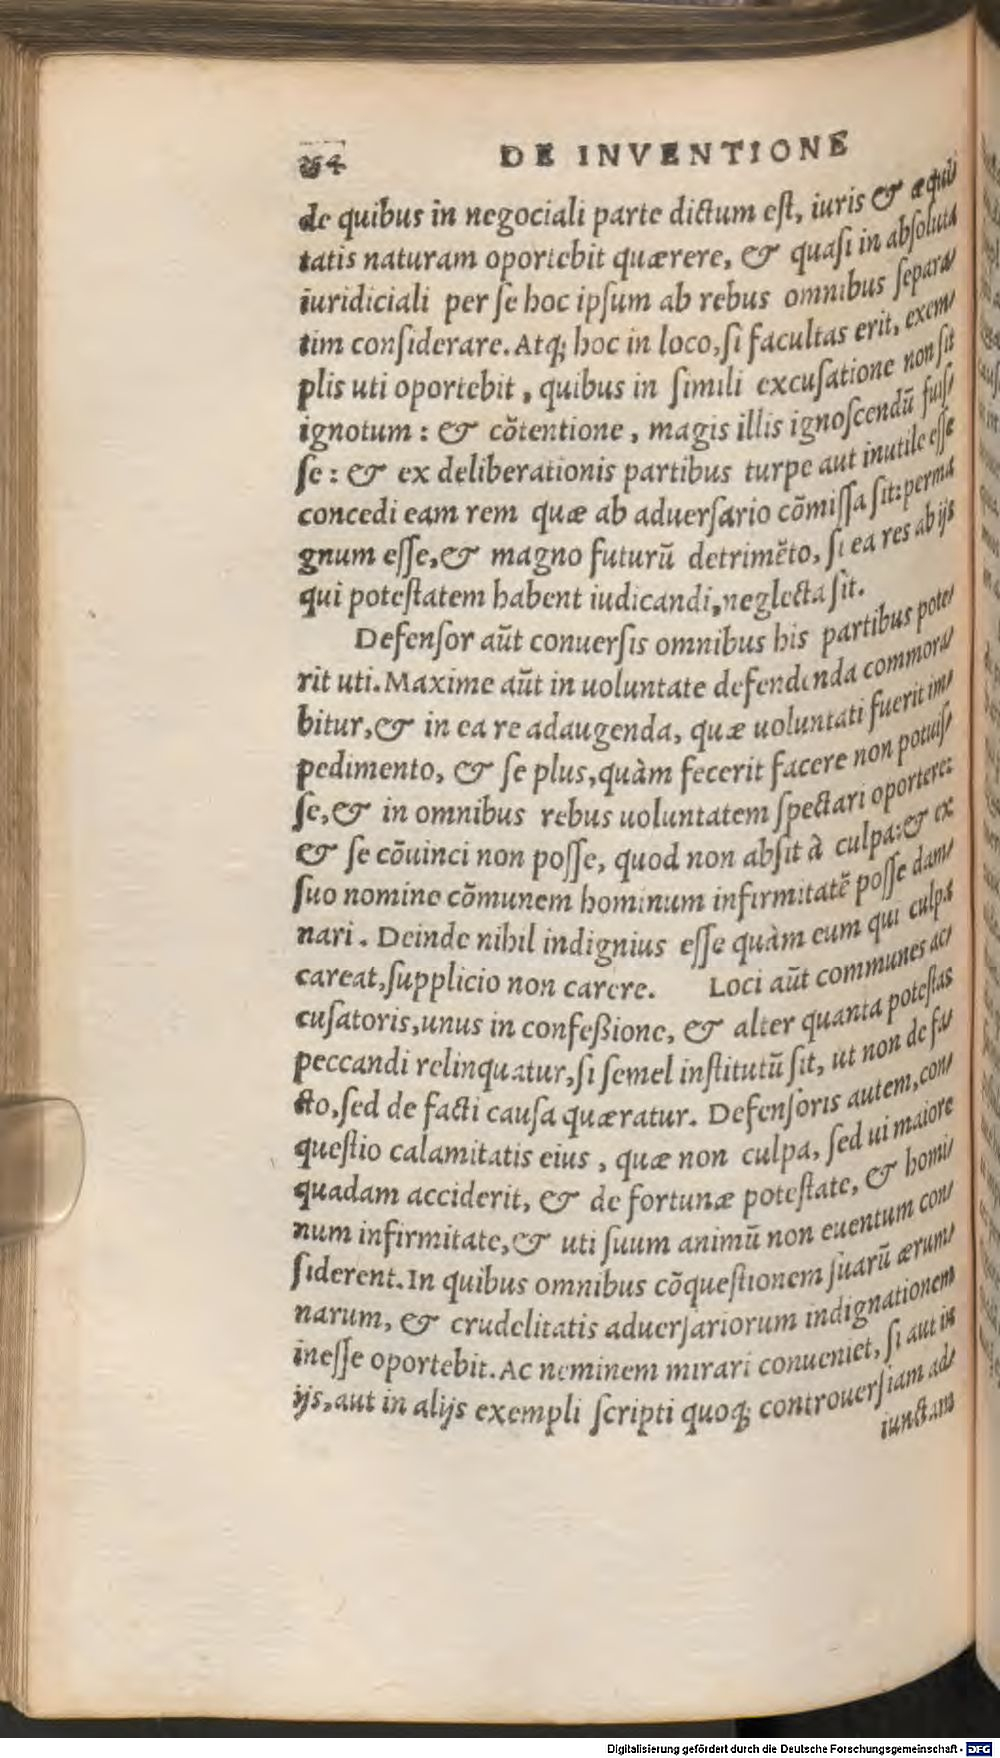 254 DE INVENTIONE
de quibus in negociali parte dictum eſt, iuris & æqui/
tatis naturam oportebit quærere, & quaſi in abſoluta
iuridiciali per ſe hoc ipſum ab rebus omnibus ſepara/
tim conſiderare. Atq; hoc in loco, ſi facultas erit, exem/
plis uti oportebit, quibus in ſimili excuſatione non ſit
ignotum: & cõtentione, magis illis ignoſcendũ fuiſ/
ſe: & ex deliberationis partibus turpe aut inutile eſſe
concedi eam rem quæ ab aduerſario cõmiſſa ſit: perma
gnum eſſe, & magno futurũ detrimẽto, ſi ea res ab ijs
qui poteſtatem habent iudicandi, neglecta ſit.
Defenſor aũt conuerſis omnibus his partibus pote/
rit uti. Maxime aũt in uoluntate defendenda commora/
bitur, & in ea re adaugenda, quæ uoluntati fuerit im/
pedimento, & ſe plus, quàm fecerit facere non potuiſ/
ſe, & in omnibus rebus uoluntatem ſpectari oportere:
& ſe cõuinci non poſſe, quod non abſit à culpa: & ex
ſuo nomine cõmunem hominum infirmitatẽ poſſe dam/
nari. Deinde nihil indignius eſſe quàm eum qui culpa
careat, ſupplicio non carere. Loci aũt communes ac/
cuſatoris, unus in confeßione, & alter quanta poteſtas
peccandi relinquatur, ſi ſemel inſtitutũ ſit, ut non de fa/
cto, ſed de facti cauſa quæratur. Defenſoris autem, con/
queſtio calamitatis eius, quæ non culpa, ſed ui maiore
quadam acciderit, & de fortunæ poteſtate, & homi/
num infirmitate, & uti ſuum animũ non euentum con/
ſiderent. In quibus omnibus cõqueſtionem ſuarũ ærum/
narum, & crudelitatis aduerſariorum indignationem
ineſſe oportebit. Ac neminem mirari conueniet, ſi aut in
ijs, aut in alijs exempli ſcripti quoq; controuerſiam ad/
iunctam
Digitalisierung gefördert durch die Deutsche Forschungsgemeinschaft - DFG